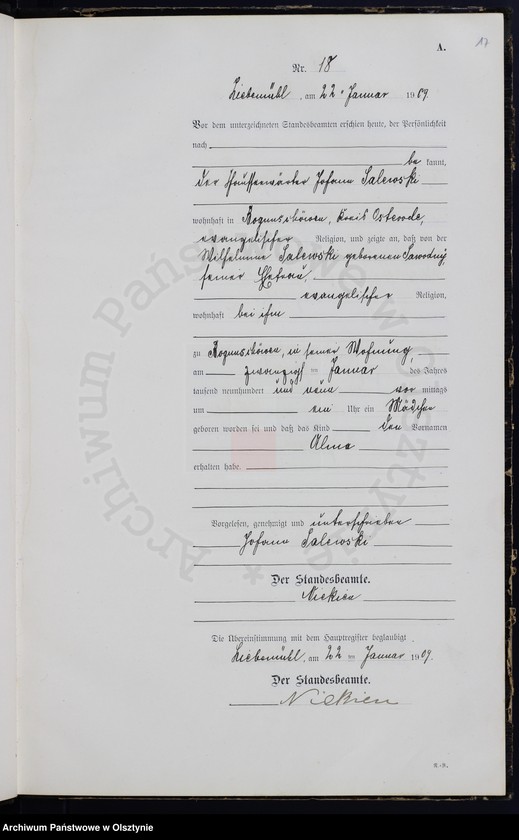 A.
17
Nr. 18
Liebemühl, am 22. Januar 1909.
Vor dem unterzeichneten Standesbeamten erschien heute, der Persönlichkeit
nach
be kannt,
der Chausseewärter Johann Salewski
wohnhaft in Kreis Osterode,
evangelischer Religion, und zeigte an, daß von der
Wilhelmine Salewski geborenen Sawodny,
seiner Ehefrau,
evangelischer Religion,
wohnhaft bei ihm
zu in seiner Wohnung,
am zwanzigsten Januar des Jahres
tausend neunhundert und neun vor mittags
um ein Uhr ein Mädchen
geboren worden sei und daß das Kind den Vornamen
Alma
erhalten habe.
Vorgelesen, genehmigt und unterschrieben
Johann Salewski
Der Standesbeamte.
Nickien
Die Übereinstimmung mit dem Hauptregister beglaubigt
Liebemühl, am 22 ten Januar 1909.
Der Standesbeamte.
Nickien
Archiwum Państwowe w Olsztynie
Archiwum Państwowe w Olsztynie